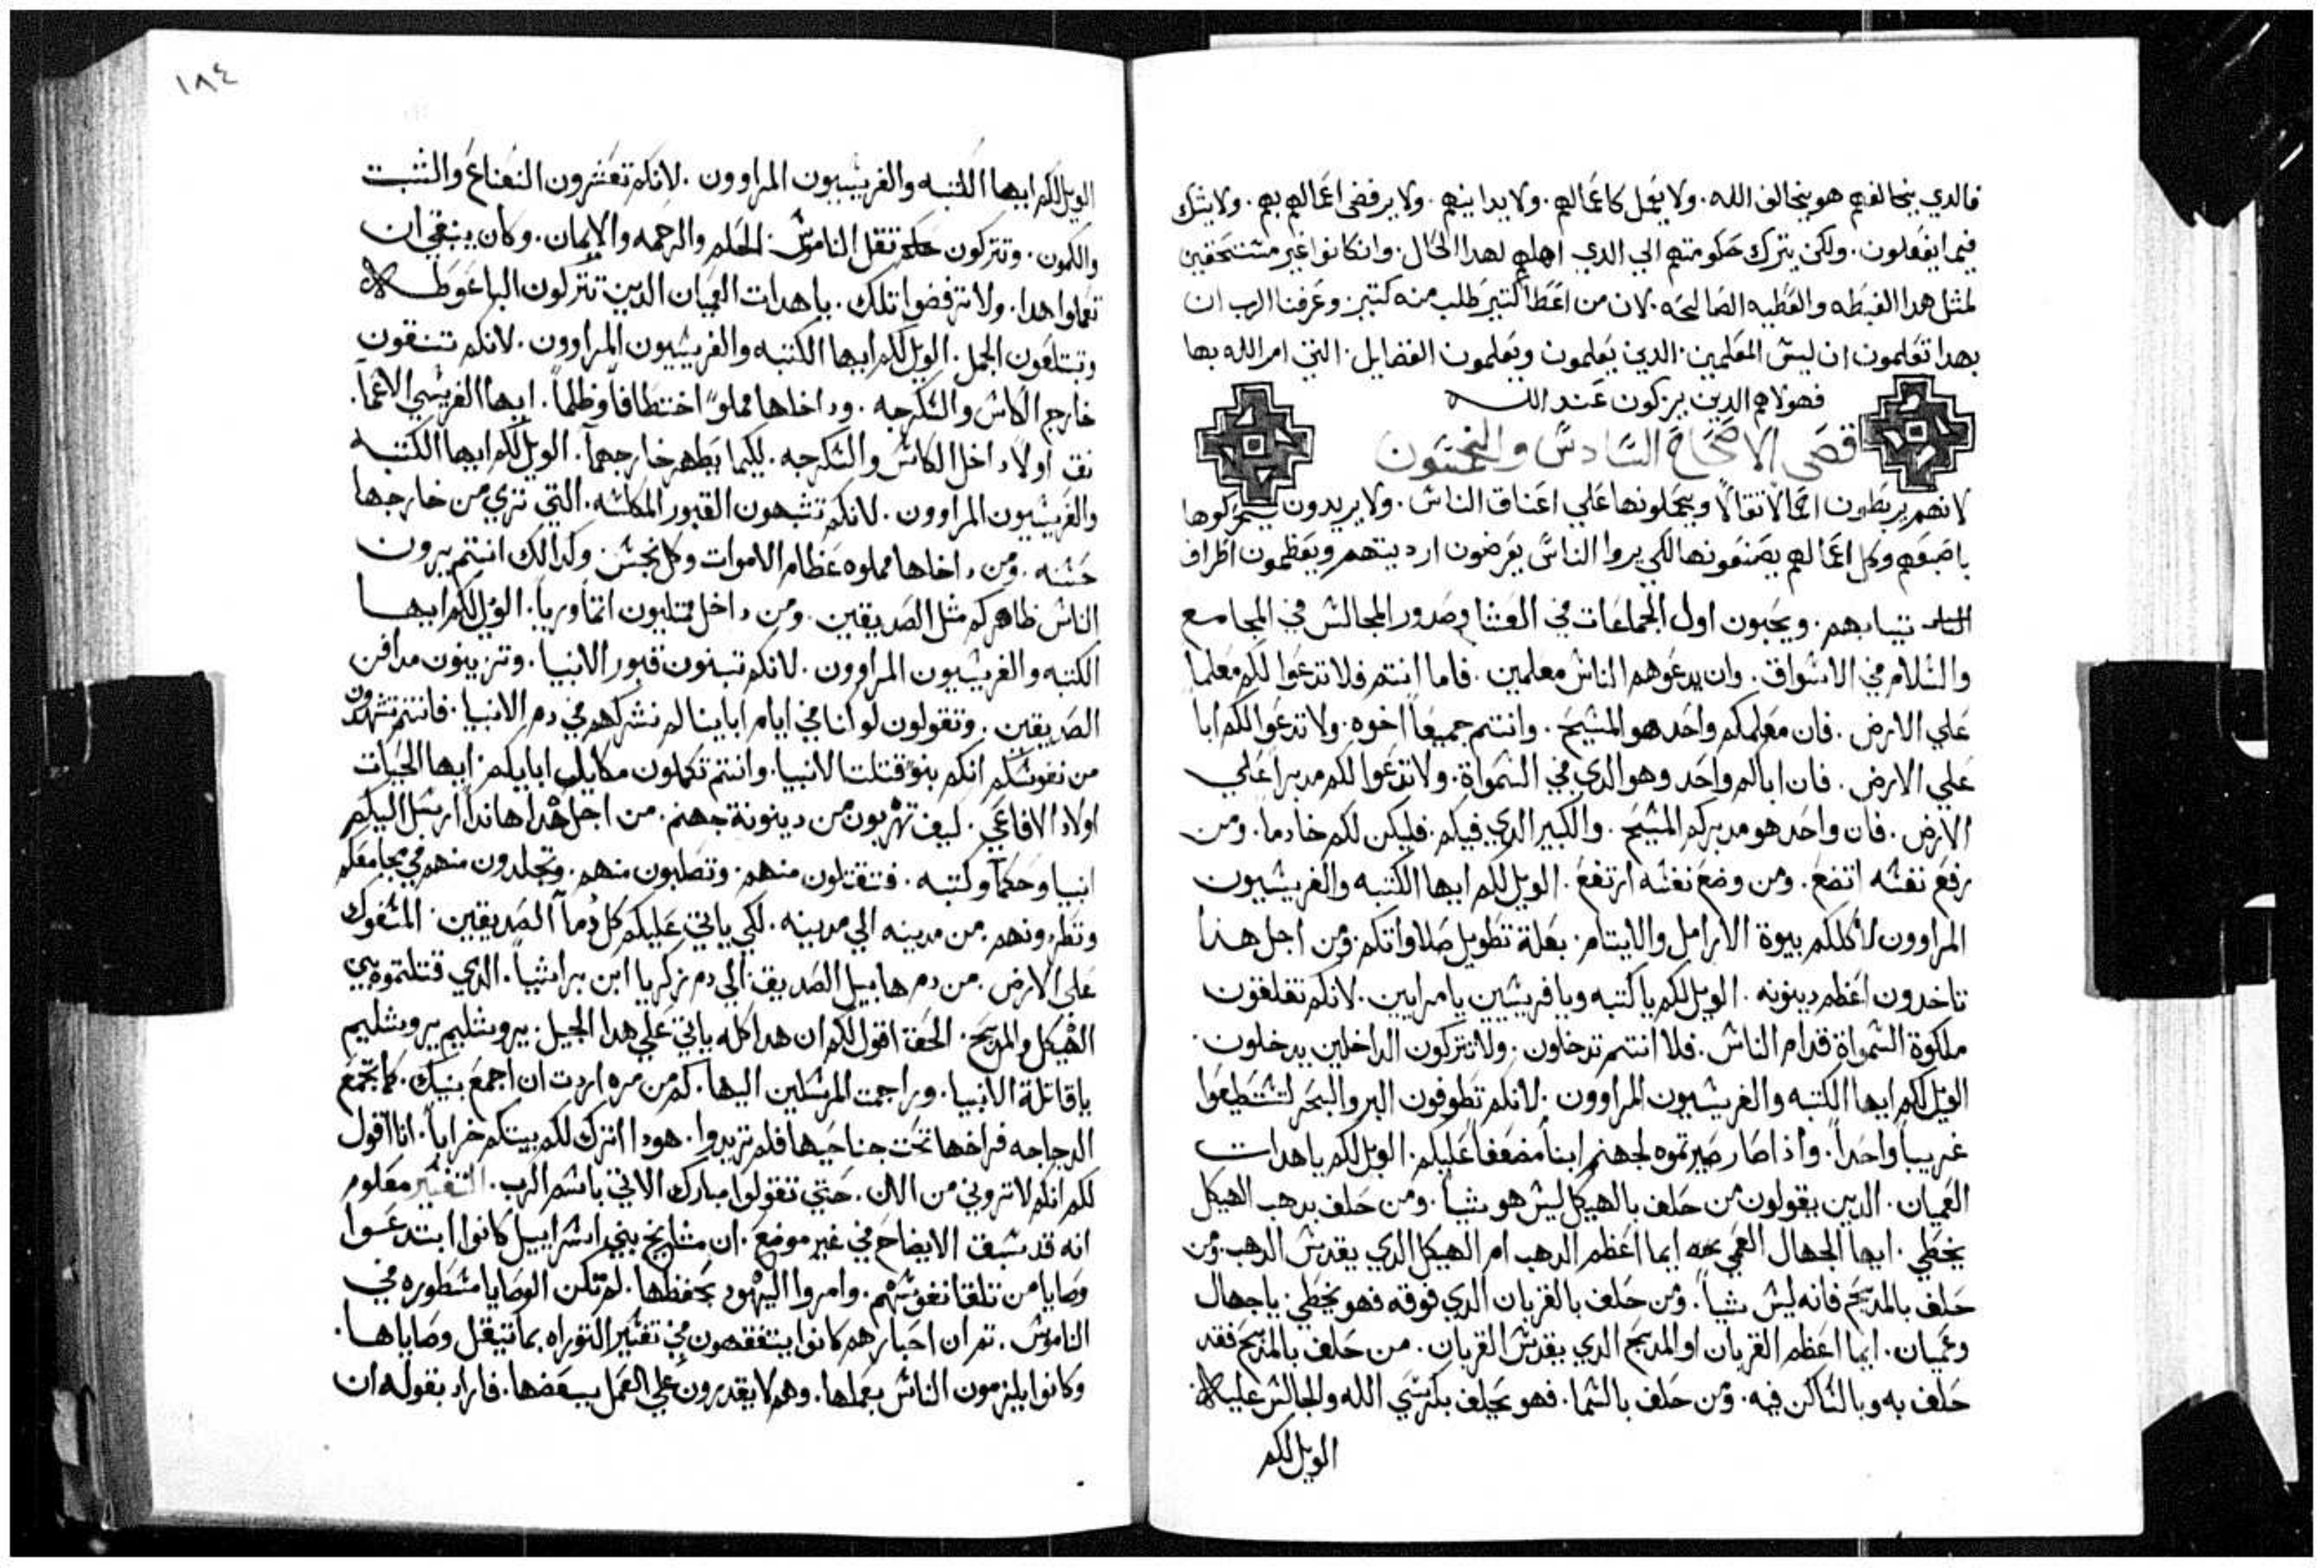 فالدي يخالفهم هو يخالف الله. ولا يعمل كاعمالهم. ولا يداينهم. ولا يرفض اعمالهم بهم. ولا يشك
فيما يفعلون. ولكن يترك حكومتهم الي الدي اهلهم لهدا الحال. وان كانوا غير مستحقين
لمثل هدا الغبطه والعطيه الصالحه. لان من اعطا كتير طلب منه كتير. وعرفنا الرب ان
بهدا تعلمون ان ليس المعلمين. الدين يعلمون ويعلمون الفضايل. التي امر الله بها
فهولاهم الدين يزكون عند الله
قصي الاصحاح السادس والخمسون
لانهم يربطون احمالا تقالا ويحملونها علي اعناق الناس. ولا يريدون يحركوها
باصبعهم وكل اعمالهم يصنعونها لكي يروا الناس يعرضون ارديتهم ويعظمون اطراف
تيابهم. ويحبون اول الجماعات في العشا وصدور المجالس في المجامع
والسلام في الاسواق. وان يدعوهم الناس معلمين. فاما انتم فلا تدعوا لكم معلما
علي الارض. فان معلمكم واحد هو المسيح. وانتم جميعا اخوه. ولا تدعوا لكم ابا
علي الارض. فان اباكم واحد وهو الدي في السمواة. ولا تدعوا لكم مدبرا علي
الارض. فان واحد هو مدبركم المسيح. والكبير الدي فيكم. فليكن لكم خادما. ومن
رفع نفسه اتضع. ومن وضع نفسه ارتفع. الويل لكم ايها الكتبه والفريسيون
المراوون لاكلكم بيوة الارامل والايتام. بعلة تطويل صلاواتكم. ومن اجل هدا
تاخدون اعظم دينونه. الويل لكم يا كتبه ويا فريسيين يا مرايين. لانكم تغلقون
ملكوة السمواة قدام الناس. فلا انتم تدخلون. ولا تتركون الداخلين يدخلون.
الويل لكم ايها الكتبه والفريسيون المراوون. لانكم تطوفون البر والبحر لتسطيعوا
غريبا واحدا. وادا صار صيرتموه لجهنم ابنا مضعفا عليكم. الويل لكم يا هدات
العميان. الدين يقولون من حلف بالهيكل ليس هو شيا. ومن حلف بدهب الهيكل
يخطي. ايها الجهال العمي ايما اعظم الدهب ام الهيكل الدي يقدس الدهب. ومن
حلف بالمدبح فانه ليس شيا. ومن حلف بالقربان الدي فوقه فهو يخطي. يا جهال
وعميان. ايما اعظم القربان او المدبح الدي يقدس القربان. من حلف بالمدبح فقد
حلف به وبالساكن فيه. ومن حلف بالسما. فهو يحلف بكرسي الله والجالس عليه.
الويل لكم
١٨٤
الويل لكم ايها الكتبه والفريسيون المراوون. لانكم تعشرون النعناع والشبت
والكمون. وتتركون عنكم تقل الناموس. الحكم والرحمه والايمان. وكان ينبغي ان
تعملوا هدا. ولا ترفضوا تلك. يا هدات العميان الدين تتركون الباعوطه
وتبتلعون الجمل. الويل لكم ايها الكتبه والفريسيون المراوون. لانكم تنقون
خارج الكاس والسكرجه. وداخلها مملو اختطافا وظلما. ايها الفريسي الاعما.
نق اولا داخل الكاس والسكرجه. لكيما يطهر خارجهما. الويل لكم ايها الكتبه
والفريسيون المراوون. لانكم تشبهون القبور المكلسه. التي تري من خارجها
حسنه. ومن داخلها مملوه عظام الاموات وكل نجس وكدالك انتم يرون
الناس ظاهركم مثل الصديقين. ومن داخل ممتليون اتما وريا. الويل لكم ايها
الكتبه والفريسيون المراوون. لانكم تبنون قبور الانبيا. وتزينون مدافن
الصديقين. وتقولون لو انا في ايام اباينا لم نشركهم في دم الانبيا. فانتم تشهدون
من نفوسكم انكم بنو قتلت الانبيا. وانتم تكملون مكاييل ابايكم. ايها الحيات
اولاد الافاعي. كيف تهربون من دينونة جهنم. من اجل هدا هاندا ارسل اليكم
انبيا وحكما وكتبه. فتقتلون منهم. وتصلبون منهم. وتجلدون منهم في مجامعكم
وتطردونهم من مدينه الي مدينه. لكي ياتي عليكم كل دما الصديقين. المسفوك
علي الارض. من دم هابيل الصديق الي دم زكريا ابن براشيا. الدي قتلتموه بين
الهيكل والمدبح. الحق اقول لكم ان هدا كله ياتي علي هدا الجيل. يروشليم يروشليم
يا قاتلة الانبيا. وراجمت المرسلين اليها. كم من مره اردت ان اجمع بنيك. كما تجمع
الدجاجه فراخها تحت جناحيها فلم تريدوا. هودا اترك لكم بيتكم خرابا. انا اقول
لكم انكم لا تروني من الان. حتي تقولوا مبارك الاتي باسم الرب. التفسير معلوم
انه قد سبق الايضاح في غير موضع. ان مشايخ بني اسراييل كانوا ابتدعوا
وصايا من تلقا نفوسهم. وامروا اليهود بحفظها. لم تكن الوصايا مسطوره في
الناموس. تم ان احبارهم كانوا يتفقهون في تفسير التوراه بما تيقل وصاياها.
وكانوا يلزمون الناس بعملها. وهم لا يقدرون علي العمل ببعضها. فاراد بقوله ان